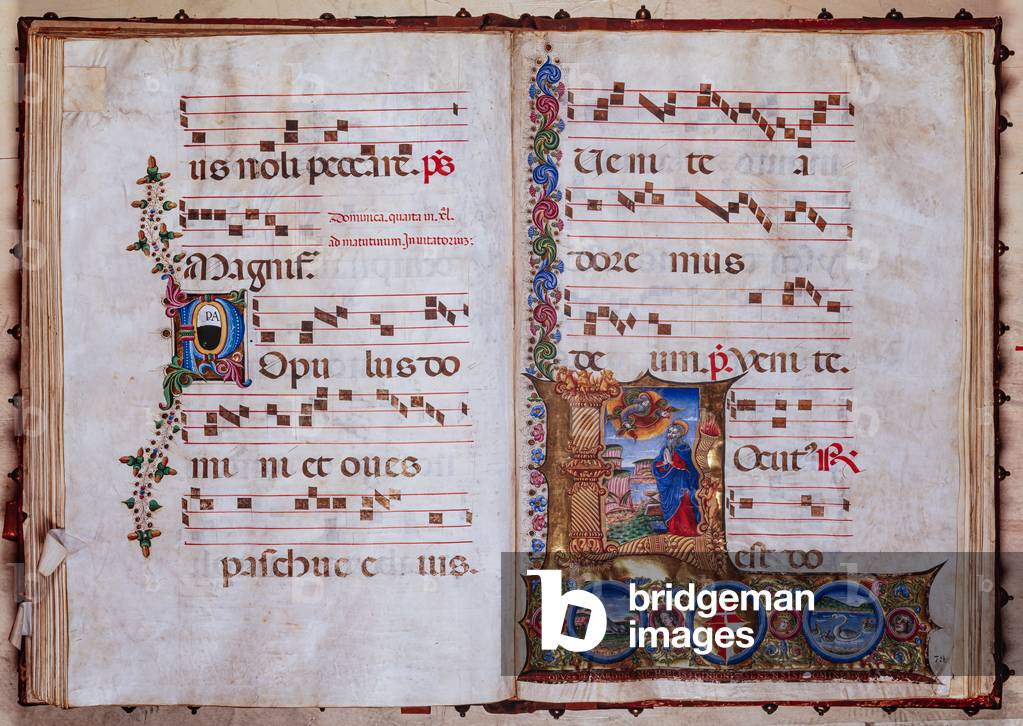 us noli peccare. ps
Dominica. quarta in. xl.
ad matutinum. Invitatorium:
Magnif.
Opu lus do
mi ni et oues
paschue e ius.
Ve ni te a
dore mus
de um. p. Veni te.
Ocut R.
est do
78
bridgeman
images